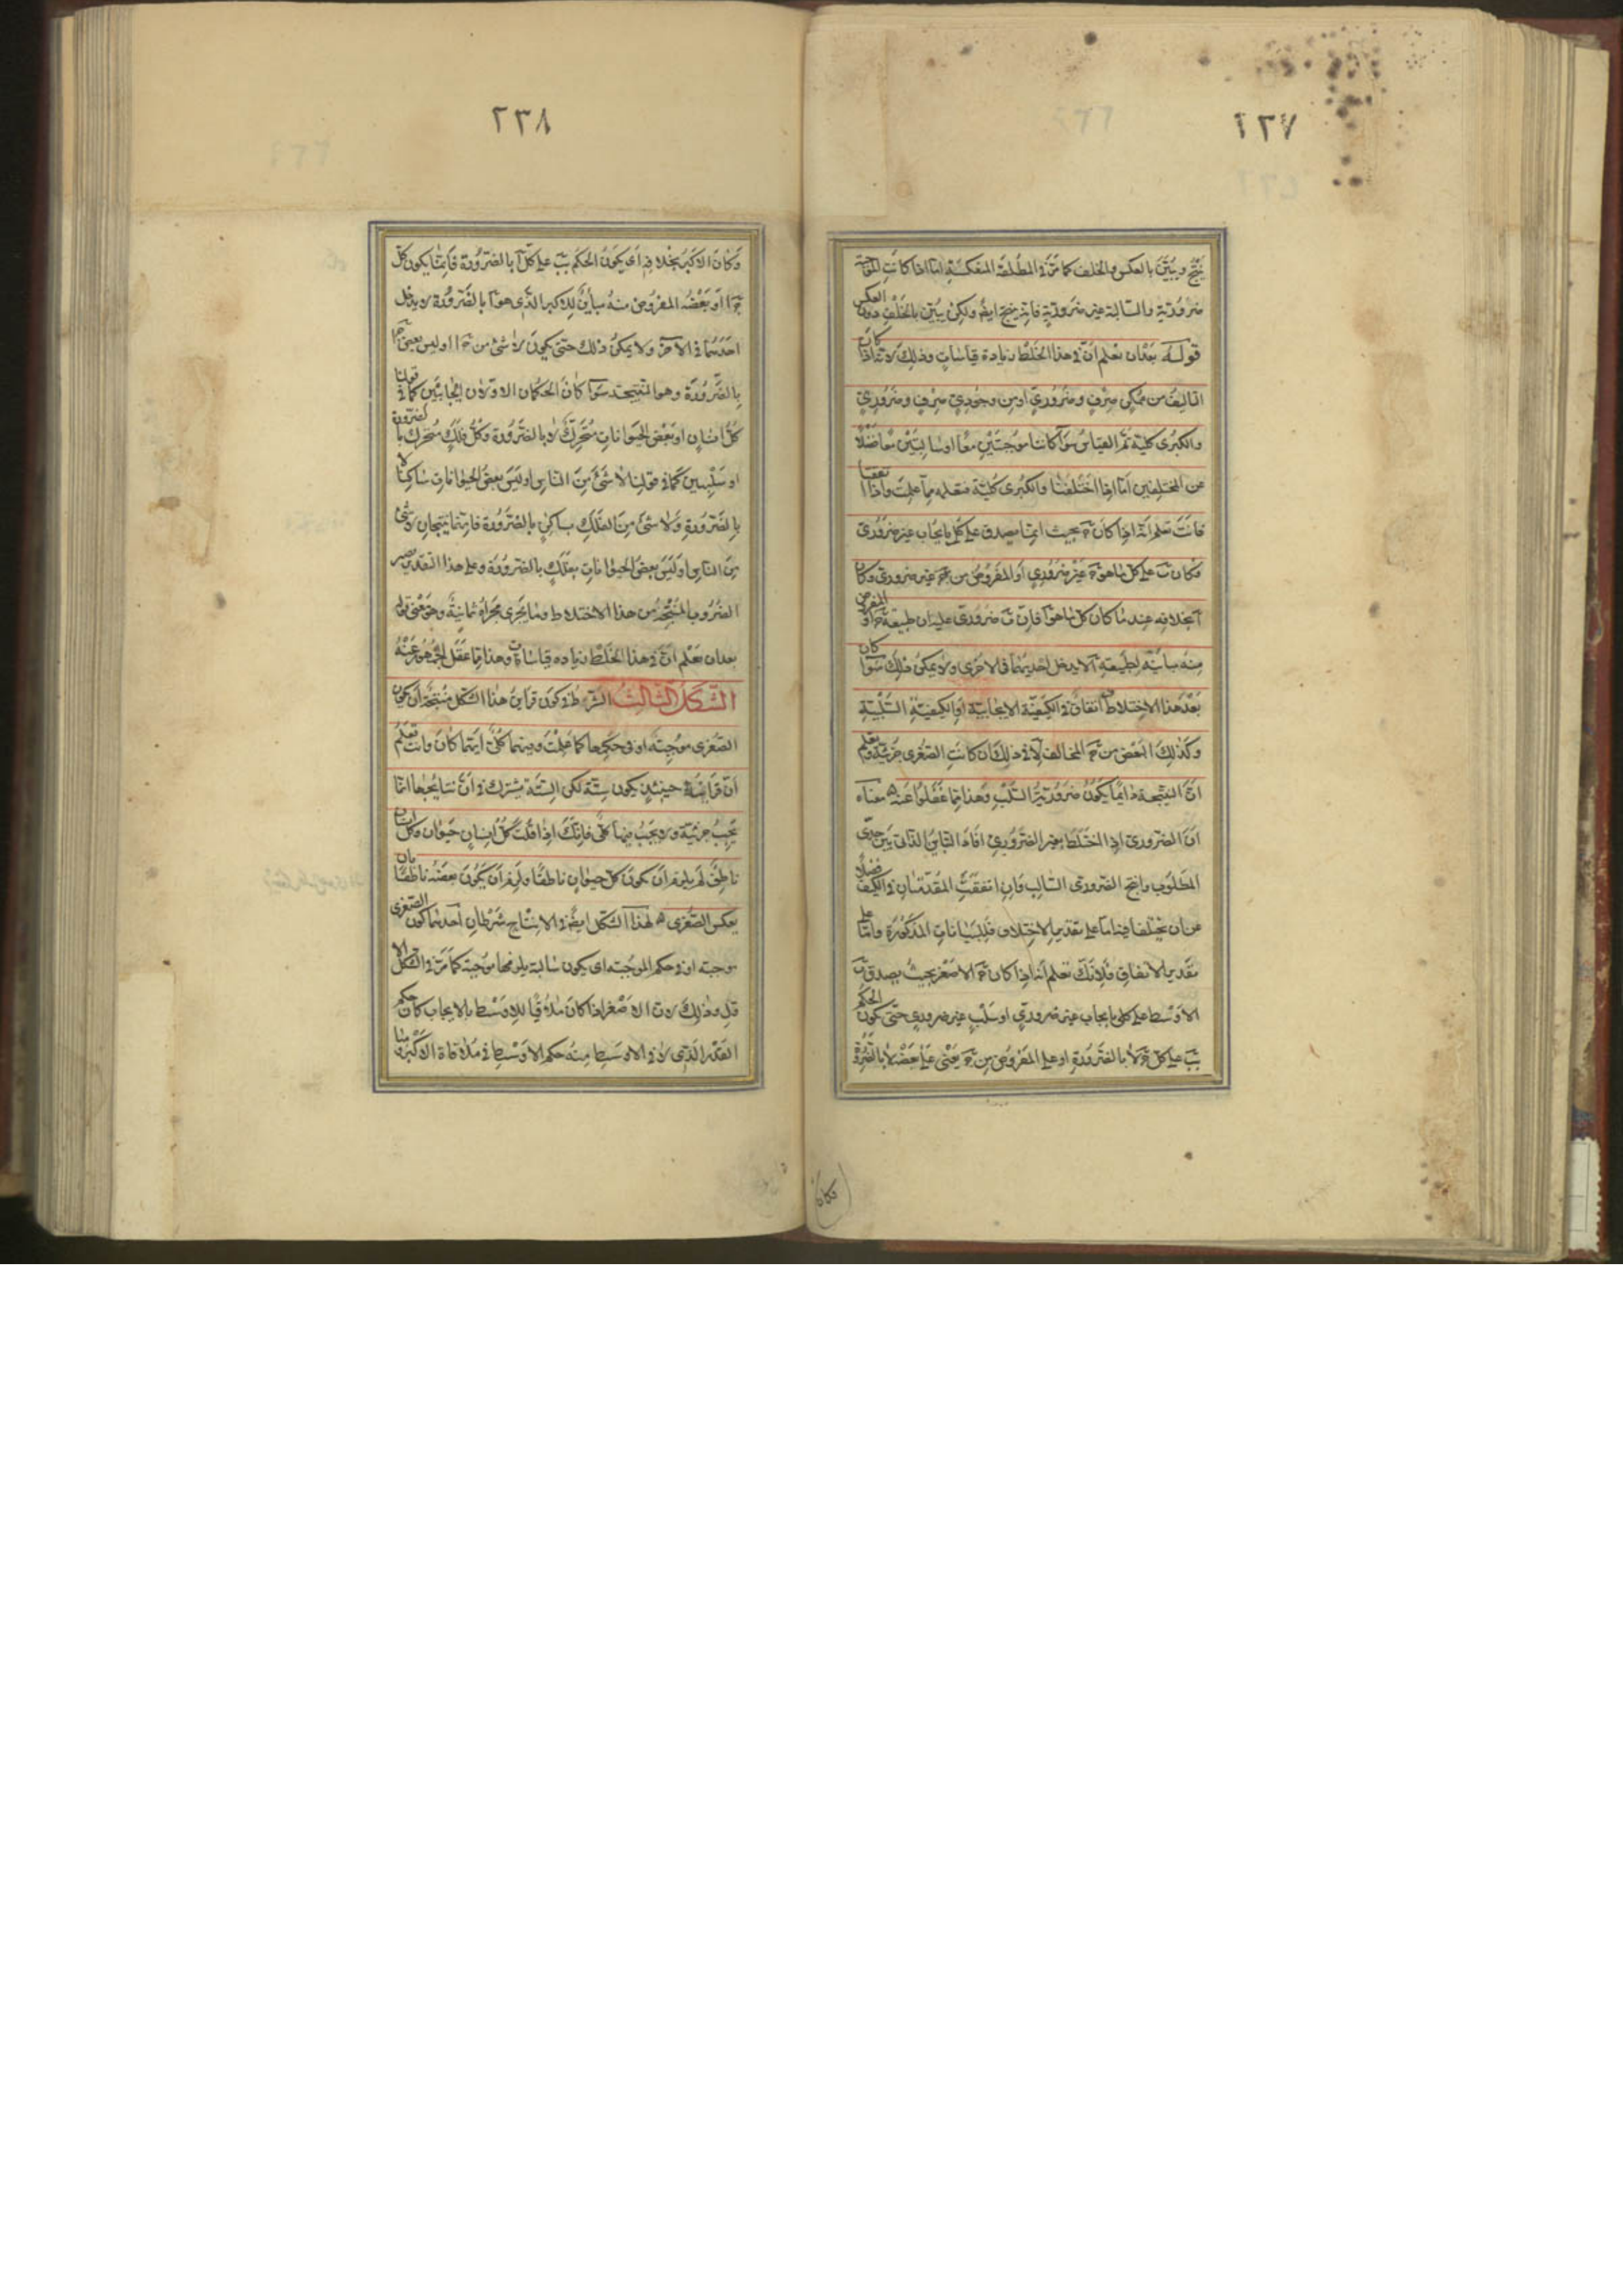 ٢٣٧
ينتج ويبيّن بالعكس والخلف كما مرّ في المطلقة المنعكسة امّا اذا كانت الموجبة
ضرورية والسالبة غير ضرورية فانه ينتج ايضا ولكن يبيّن بالخلف دون العكس
قوله بعد ان تعلم انّ في هذا الخلط زيادة قياسات وذلك لانه اذا كان
التاليف من ممكن صرف وضروري او من وجودي صرف وضروري
والكبرى كلية تمّ القياس سوآ كانتا موجبتين معا او سالبتين معا فضلا
عن المختلفين امّا اذا اختلفتا والكبرى كلية فتعلمه ممّا علمت واذا اتفقتا
فانت تعلم انه اذا كان ج بحيث انما يصدق على كله بايجاب غير ضروري
وكان ب على كل ما هو ج غير ضروري او المفروض من ج غير ضروري وكان
آ بخلافه عند ما كان كل ما هو آ فانّ ب ضروري عليه ان طبيعة ج او المفروض
منه مباينة لطبيعة آ لا يدخل احديهما في الاخرى ولا يمكن ذلك سوآ كان
بعد هذا الاختلاط اتفاق في الكيفية الايجابية او الكيفية السلبية
وكذلك البعض من ج المخالف لآ في ذلك ان كانت الصغرى جزئية وتعلم
انّ النتيجة دايما يكون ضرورية السلب وهذا ممّا غفلوا عنه معناه
انّ الضروري اذا اختلط بغير الضروري افاد التباين الذاتي بين حدّي
المطلوب وانتج الضروري السالب فان اتفقت المقدمتان في الكيف فضلا
عن ان يختلفا فيه امّا على تقدير الاختلاف فللبيانات المذكورة وامّا على
تقدير الاتفاق فلانّك تعلم انه اذا كان ج الاصغر بحيث يصدق ب
الاوسط على كله بايجاب غير ضروري او سلب غير ضروري حتى يكون الحكم
بب على كل ج لا بالضرورة او على المفروض من ج يعني على بعضه لا بالضرورة
وكان
٢٣٨
وكان الاكبر بخلافه اي يكون الحكم بب على كل آ بالضرورة فانما يكون كل
ج ا او بعضه المفروض منه مباين للاكبر الذي هو آ بالضرورة لا يدخل
احدهما في الآخر ولا يمكن ذلك حتى يكون لا شئ من ج ا او ليس بعض ج ا
بالضرورة وهو النتيجة سوآ كان الحكمان الاولان ايجابيين كما في قولنا
كل انسان او بعض الحيوانات متحرك لا بالضرورة وكل فلك متحرك بالضرورة
او سلبيين كما في قولنا لا شئ من الناس او ليس بعض الحيوانات ساكنا لا
بالضرورة ولا شئ من الفلك بساكن بالضرورة فانهما ينتجان لا شئ
من الناس او ليس بعض الحيوانات بفلك بالضرورة وعلى هذا التقدير يصير
الضروب المنتجة من هذا الاختلاط وما يجري مجراه ثمانية وهو معنى قوله
بعد ان تعلم انّ في هذا الخلط زيادة قياسات وهذا ممّا غفل الجمهور عنه
الشكل الثالث الشرط في كون قراين هذا الشكل منتجة ان يكون
الصغرى موجبة او في حكمها كما علمت وفيهما كلّي ايهما كان وانت تعلم
انّ قراينه حينئذ يكون ستة لكن الستة تشترك في انّ نتايجها انّما
تجب جزئية ولا يجب فيها كلّي فانك اذا قلت كل انسان حيوان وكل انسان
ناطق لم يلزم ان يكون كل حيوان ناطقا ولزم ان يكون بعضه ناطقا بان
يعكس الصغرى لهذا الشكل ايضا في الانتاج شرطان احدهما كون الصغرى
موجبة او في حكم الموجبة اي يكون سالبة يلزمها موجبة كما مرّ في الشكل الا
ول وذلك لان الاصغر اذا كان ملاقيا للاوسط بالايجاب كان حكم
القدر الذي لاقي الاوسط منه حكم الاوسط في ملاقاة الاكبر و